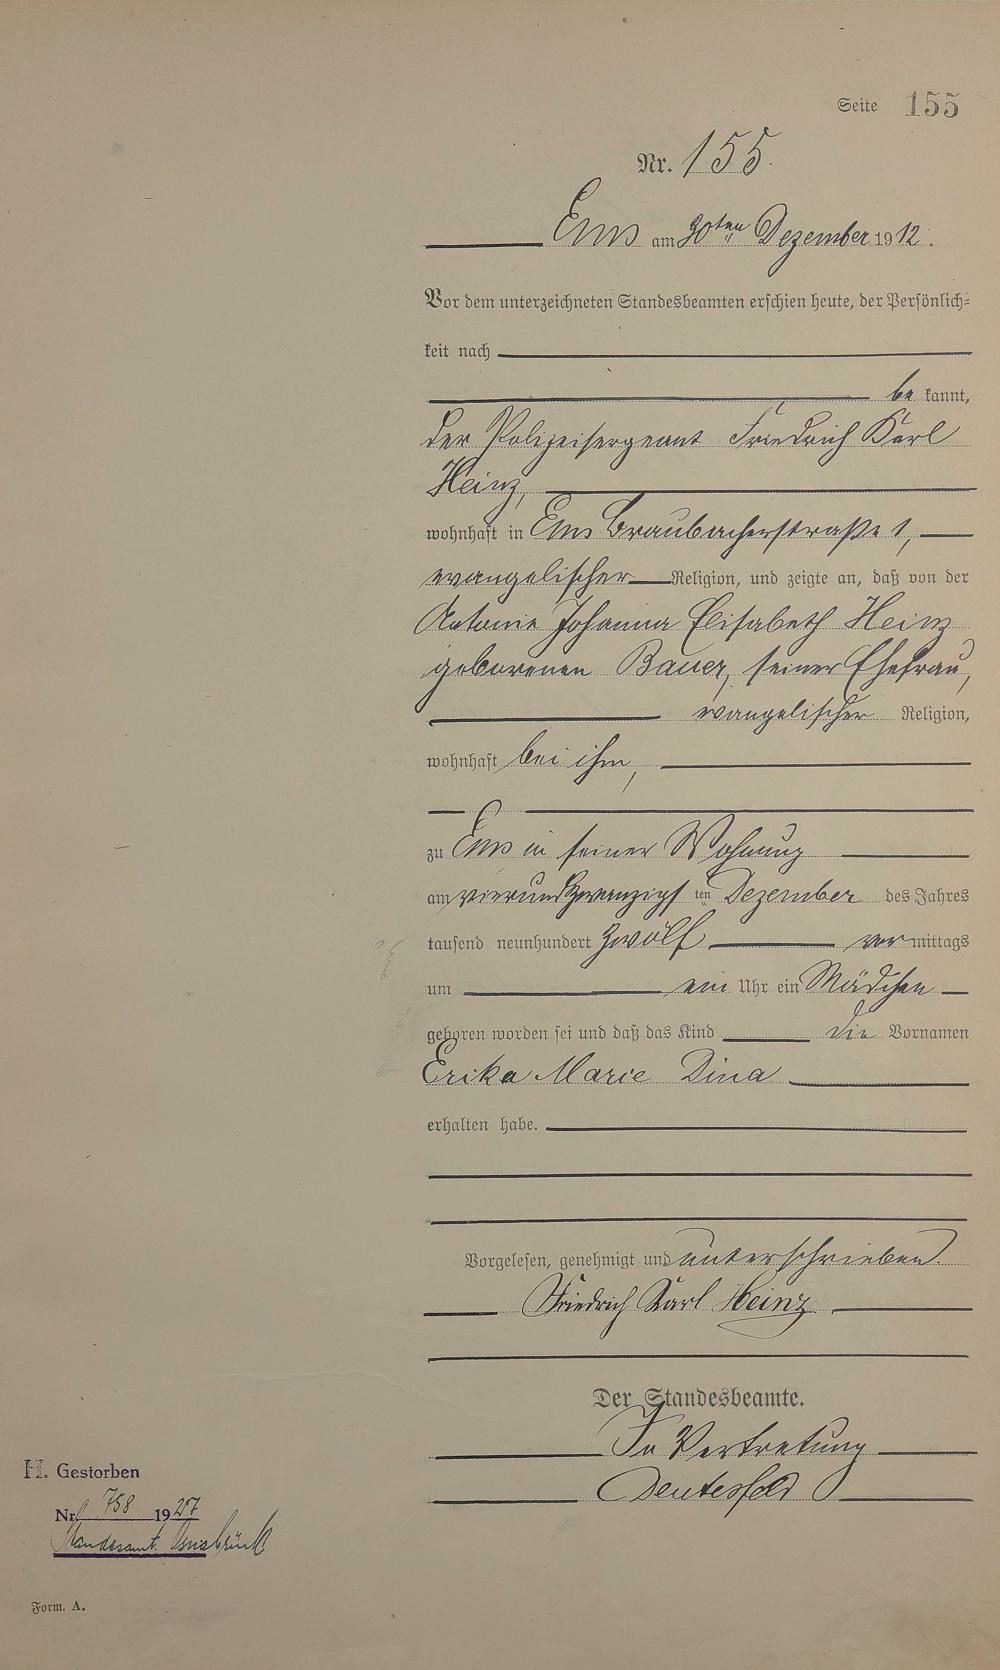 Seite 155
Nr. 155.
Ems am 30ten Dezember 1912.
Vor dem unterzeichneten Standesbeamten erschien heute, der Persönlich-
keit nach
be kannt,
der Polizeisergeant Friedrich Karl
Heinz,
wohnhaft in Ems Braubacherstraße 1,
evangelischer Religion, und zeigte an, daß von der
Antonie Johanna Elisabeth Heinz
geborenen Bauer, seiner Ehefrau,
evangelischer Religion,
wohnhaft bei ihm,
zu Ems in seiner Wohnung
am vierundzwanzigsten Dezember des Jahres
tausend neunhundert zwölf vormittags
um ein Uhr ein Mädchen
geboren worden sei und daß das Kind die Vornamen
Erika Marie Dina
erhalten habe.
Vorgelesen, genehmigt und unterschrieben.
Friedrich Karl Heinz
Der Standesbeamte.
In Vertretung
H. Gestorben
Nr. 758 19
Standesamt Osnabrück
Form. A.